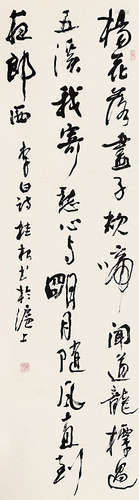 楊花落盡子規啼聞道龍標過
五溪我寄愁心与明月隨風直到
夜郎西
李白詩桂松书於滬上